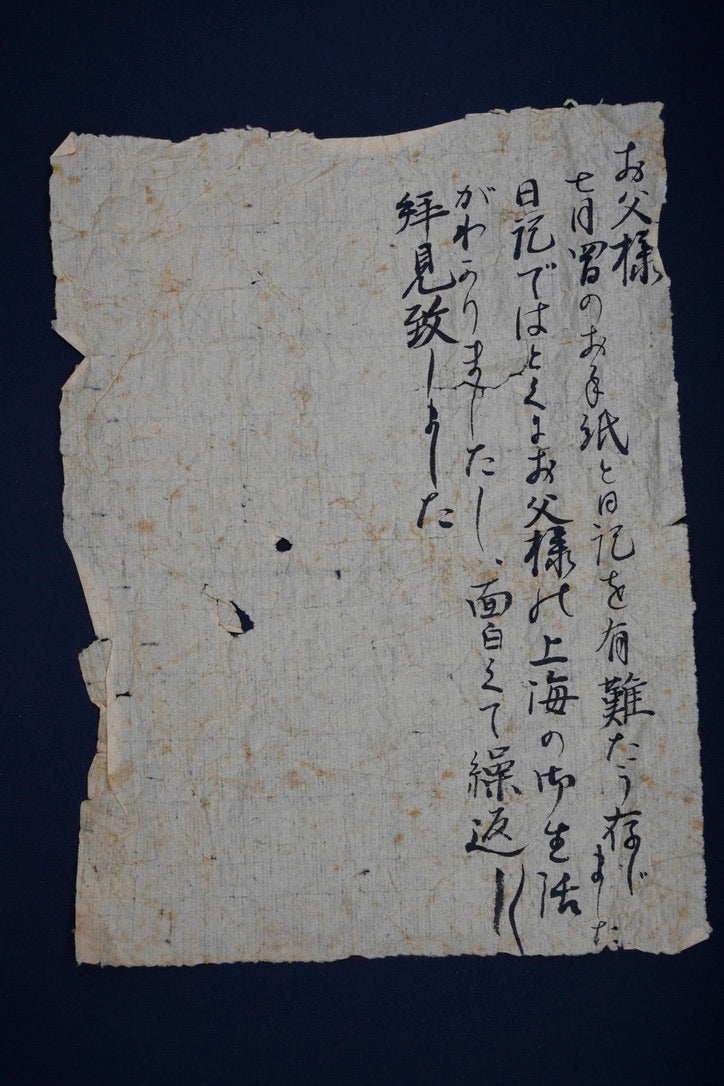 お父様
七月習のお手紙と日記を有難たう存じました
日記ではとくにお父様の上海の御生活
がわかりましたし、面白くて繰返し〱
拝見致しました